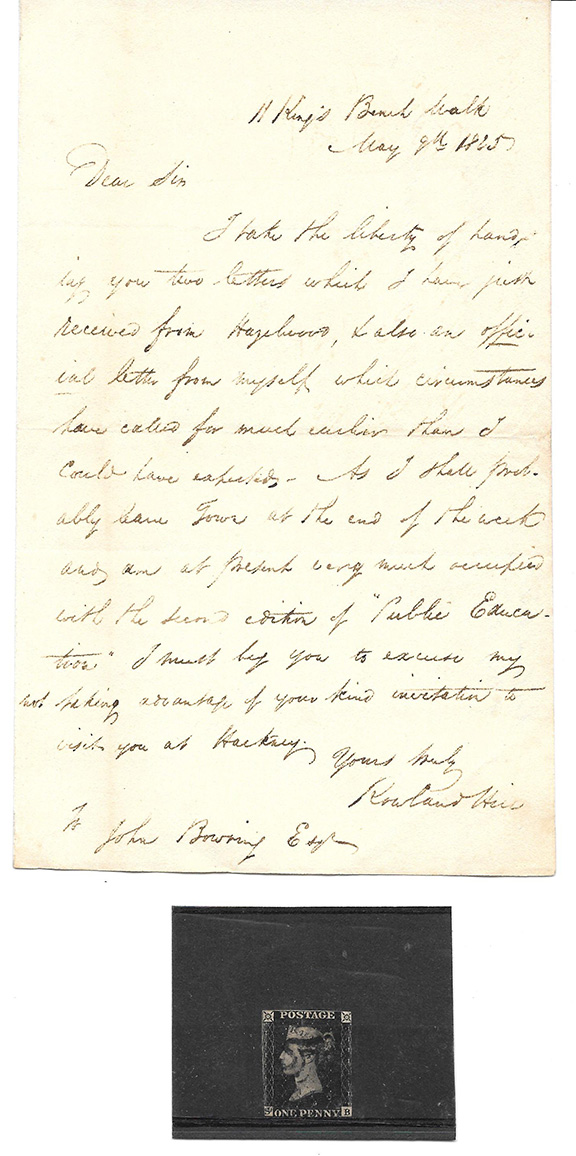 11 King's Bench Walk
May 9th 1825
Dear Sir
I take the liberty of hand-
ing you two letters which I have just
received from Hazelwood, & also an offic-
ial letter from myself which circumstances
have called for much earlier than I
could have expected. As I shall prob-
ably leave Town at the end of the week
and am at present very much occupied
with the second edition of "Public Educa-
tion" I must beg you to excuse my
not taking advantage of your kind invitation to
visit you at Hackney.
Yours truly
Rowland Hill
To
John Bowring Esqr
POSTAGE
S ONE PENNY B